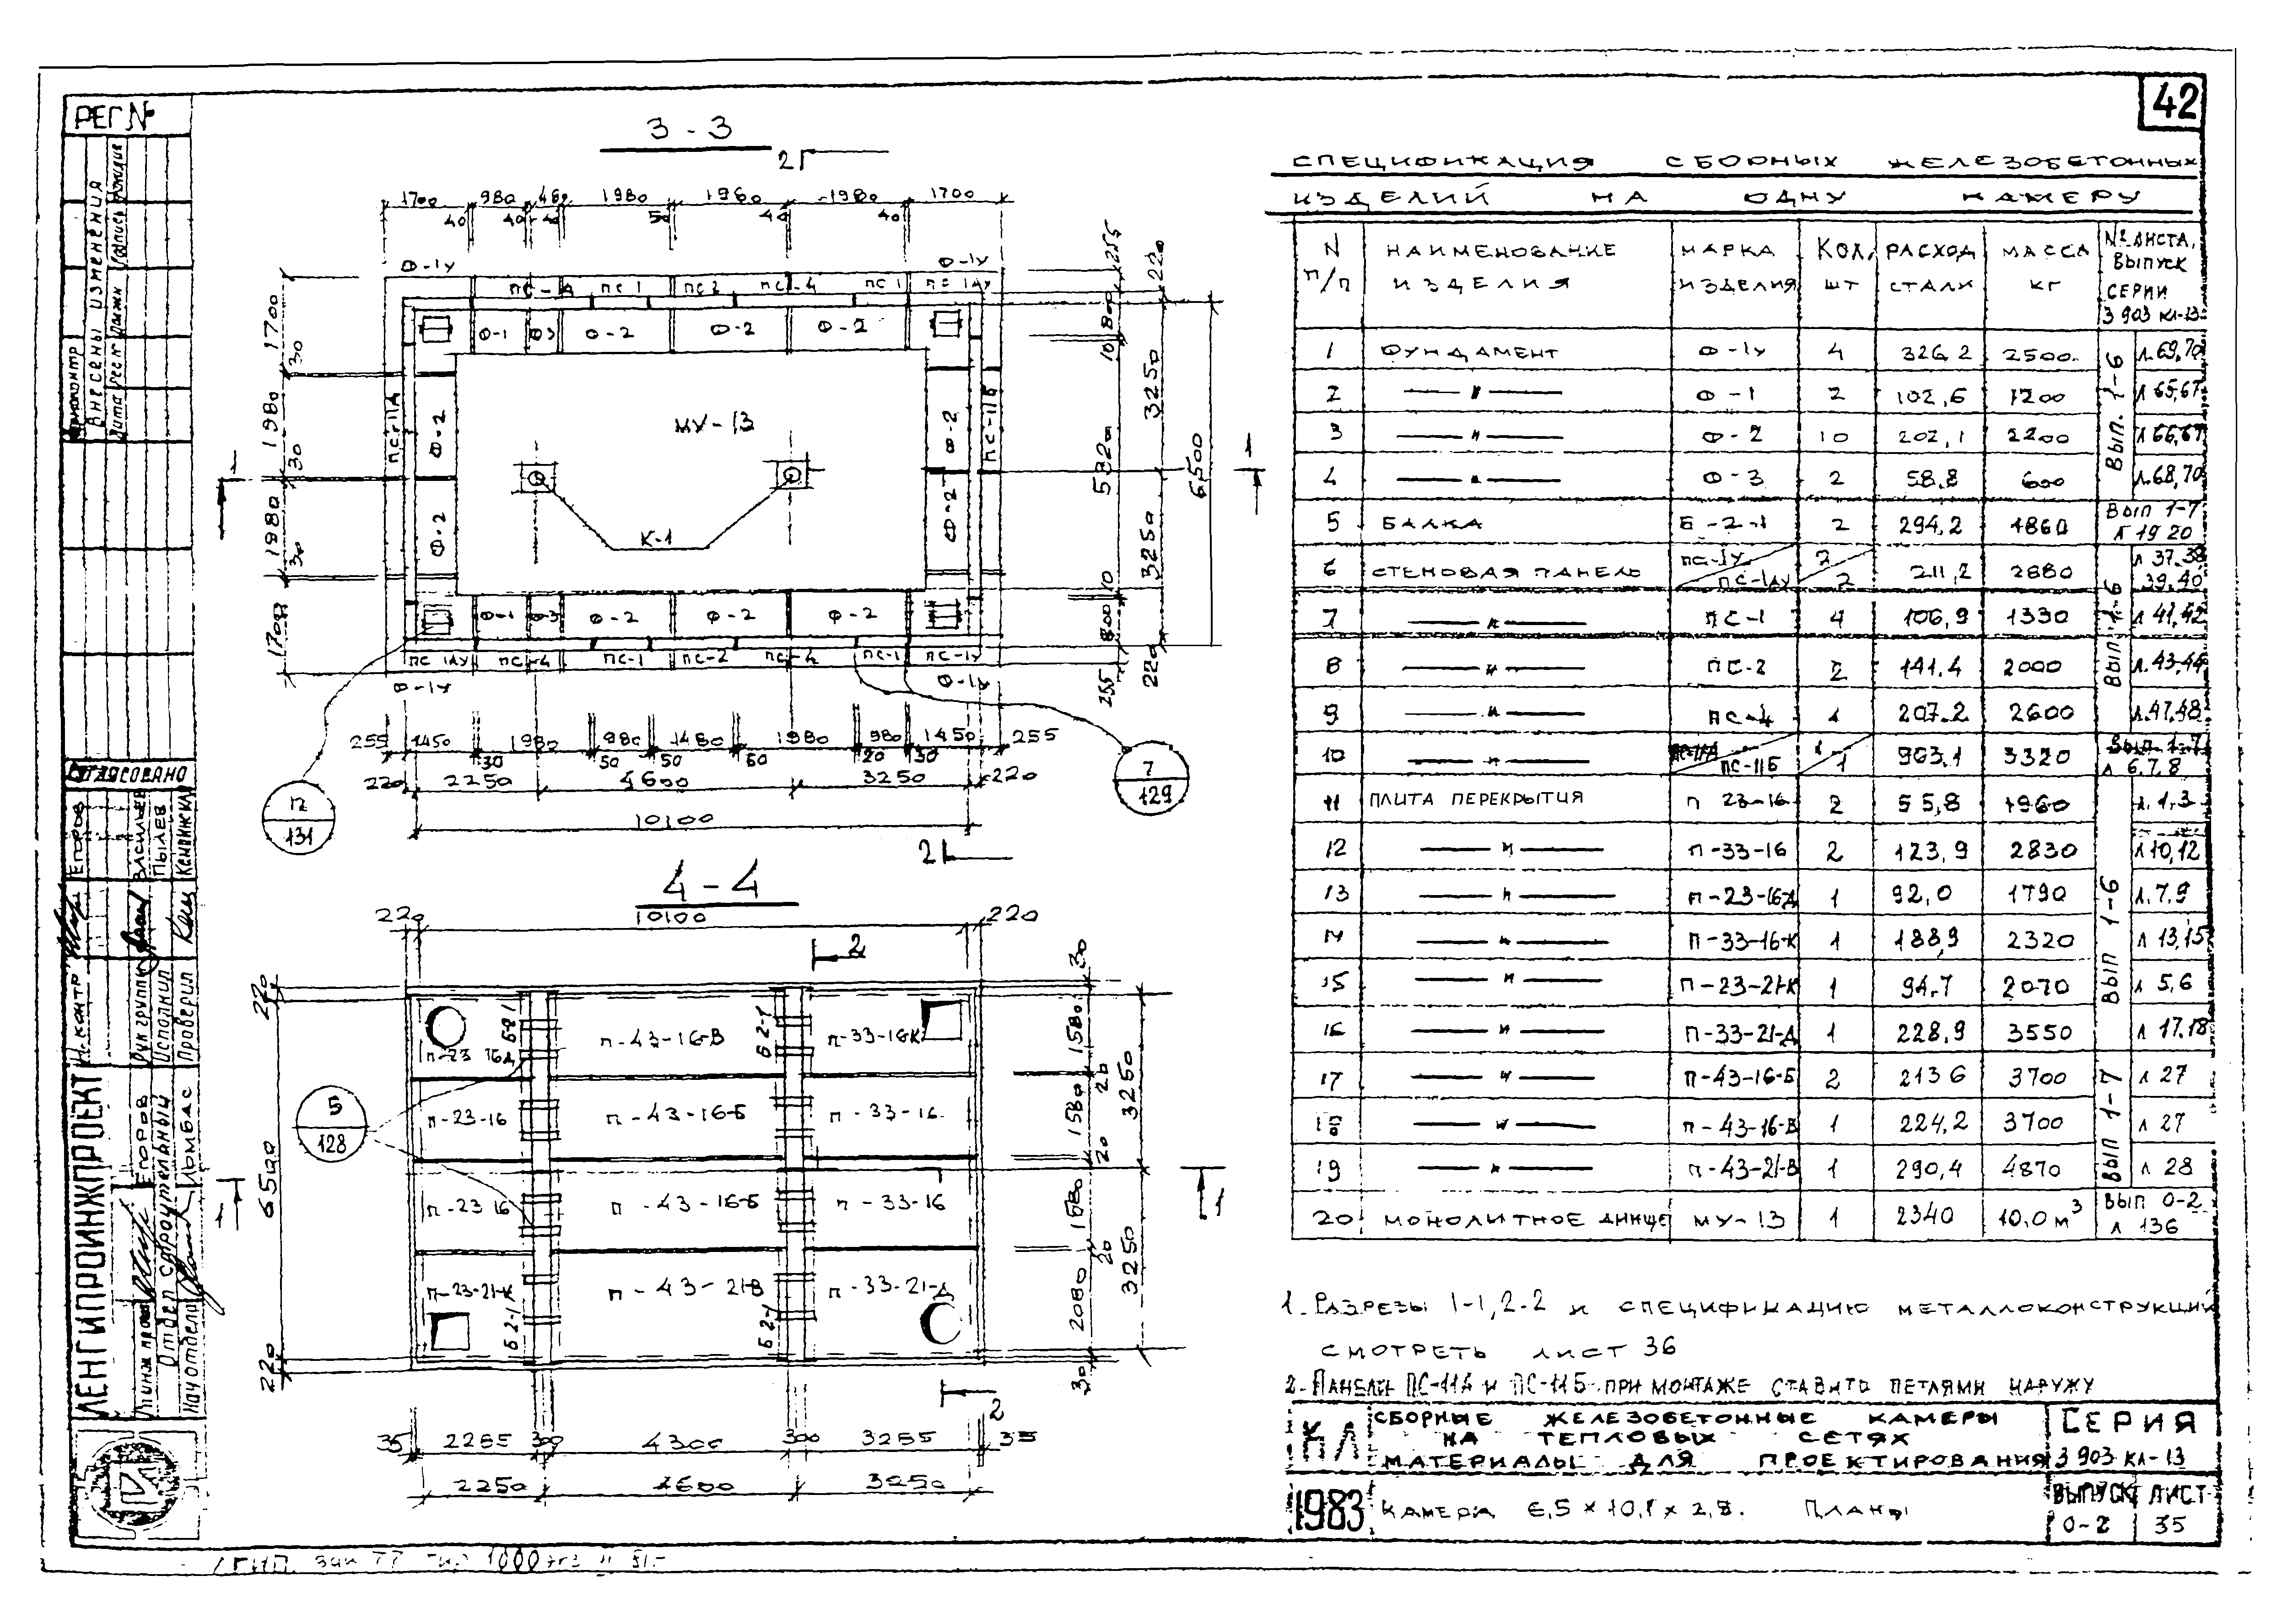 42
РЕГ.№
3 - 3
2
1700 980 460 1980 1960 1980 1700
40 40 40 50 40 40
Ф-1У Ф-1У
ПС-1 ПС-2 ПС-4 ПС-1 ПС-1ДУ
Ф-1 Ф-3 Ф-2 Ф-2 Ф-2
МУ-13
К-1
ПС-11Д Ф-2 Ф-2 ПС-11Б
Ф-2 Ф-2
Ф-1 Ф-3 Ф-2 Ф-2 Ф-2
ПС-1ДУ ПС-4 ПС-1 ПС-2 ПС-4 ПС-1 ПС-1У
Ф-1У Ф-1У
1700 30 1980 30 1980 30 1700
255 220 800 10 3250 6500 3250 10 800 220 255
1 1
255 1450 1980 980 1480 1980 980 1450 255
30 50 50 60 20 30
220 2250 4600 3250 220
10100
12
131
7
129
2
4 - 4
220 10100 220
2
П-23-16Д Б2-1 П-43-16-В Б2-1 П-33-16К
П-23-16 П-43-16-Б П-33-16
П-23-16 П-43-16-Б П-33-16
П-23-21-К Б2-1 П-43-21В Б2-1 П-33-21-Д
5
128
220 6500 220
30 1580 20 1580 20 1580 20 2080 30
3250 3250
1 1
2
35 2265 300 4300 300 3265 35
2250 4600 3250
СПЕЦИФИКАЦИЯ СБОРНЫХ ЖЕЛЕЗОБЕТОННЫХ
ИЗДЕЛИЙ НА ОДНУ КАМЕРУ
N П/П НАИМЕНОВАНИЕ ИЗДЕЛИЯ МАРКА ИЗДЕЛИЯ КОЛ. ШТ РАСХОД СТАЛИ МАССА КГ № ЛИСТА, ВЫПУСК СЕРИИ 3 903 КЛ-13
1 ФУНДАМЕНТ Ф-1У 4 326.2 2500 ВЫП. 1-6 Л.69,70
2 —"— Ф-1 2 102,6 1200 Л 65,67
3 —"— Ф-2 10 202,1 2200 Л 66,67
4 —"— Ф-3 2 58.8 600 Л.68,70
5 БАЛКА Б-2-1 2 294,2 1860 ВЫП 1-7 Л 19 20
6 СТЕНОВАЯ ПАНЕЛЬ ПС-1У ПС-1ДУ 2 2 211,2 2880 ВЫП. 1-6 Л 37.38 39.40
7 —"— ПС-1 4 106,9 1330 Л 41,42
8 —"— ПС-2 2 141.4 2000 Л.43,44
9 —"— ПС-4 4 207.2 2600 Л.47,48
10 —"— ПС-11Д ПС-11Б 1 1 963.1 3320 ВЫП. 1-7 Л 6.7.8
11 ПЛИТА ПЕРЕКРЫТИЯ П 23-16 2 55,8 1960 ВЫП 1-6 Л. 1.3
12 —"— П-33-16 2 123,9 2830 Л 10,12
13 —"— П-23-16Д 1 92,0 1790 Л.7.9
14 —"— П-33-16-К 1 188,9 2320 Л 13,15
15 —"— П-23-21-К 1 94.7 2070 Л 5,6
16 —"— П-33-21-Д 1 228,9 3550 Л 17.18
17 —"— П-43-16-Б 2 213 6 3700 ВЫП 1-7 Л 27
18 —"— П-43-16-В 1 224.2 3700 Л 27
19 —"— П-43-21-В 1 290,4 4870 Л 28
20 МОНОЛИТНОЕ ДНИЩЕ МУ-13 1 2340 10.0 м³ ВЫП 0-2 Л 136
1. РАЗРЕЗЫ 1-1, 2-2 И СПЕЦИФИКАЦИЮ МЕТАЛЛОКОНСТРУКЦИЙ
СМОТРЕТЬ ЛИСТ 36
2. ПАНЕЛИ ПС-11Д И ПС-11Б ПРИ МОНТАЖЕ СТАВИТЬ ПЕТЛЯМИ НАРУЖУ
КЛ
СБОРНЫЕ ЖЕЛЕЗОБЕТОННЫЕ КАМЕРЫ
НА ТЕПЛОВЫХ СЕТЯХ
МАТЕРИАЛЫ ДЛЯ ПРОЕКТИРОВАНИЯ
СЕРИЯ
3 903 КЛ-13
1983
КАМЕРА 6,5 × 10,1 × 2,8. ПЛАНЫ
ВЫПУСК ЛИСТ
0-2 35
ВНЕСЕНЫ ИЗМЕНЕНИЯ
СОГЛАСОВАНО
ЛЕНГИПРОИНЖПРОЕКТ
Н. КОНТР ЕГОРОВ
РУК ГРУППЫ ВАСИЛЬЕВ
ИСПОЛНИЛ ПЫЛЕВ
ПРОВЕРИЛ
ЕГОРОВ
ОТДЕЛ СТРОИТЕЛЬНЫЙ
НАЧ ОТДЕЛА